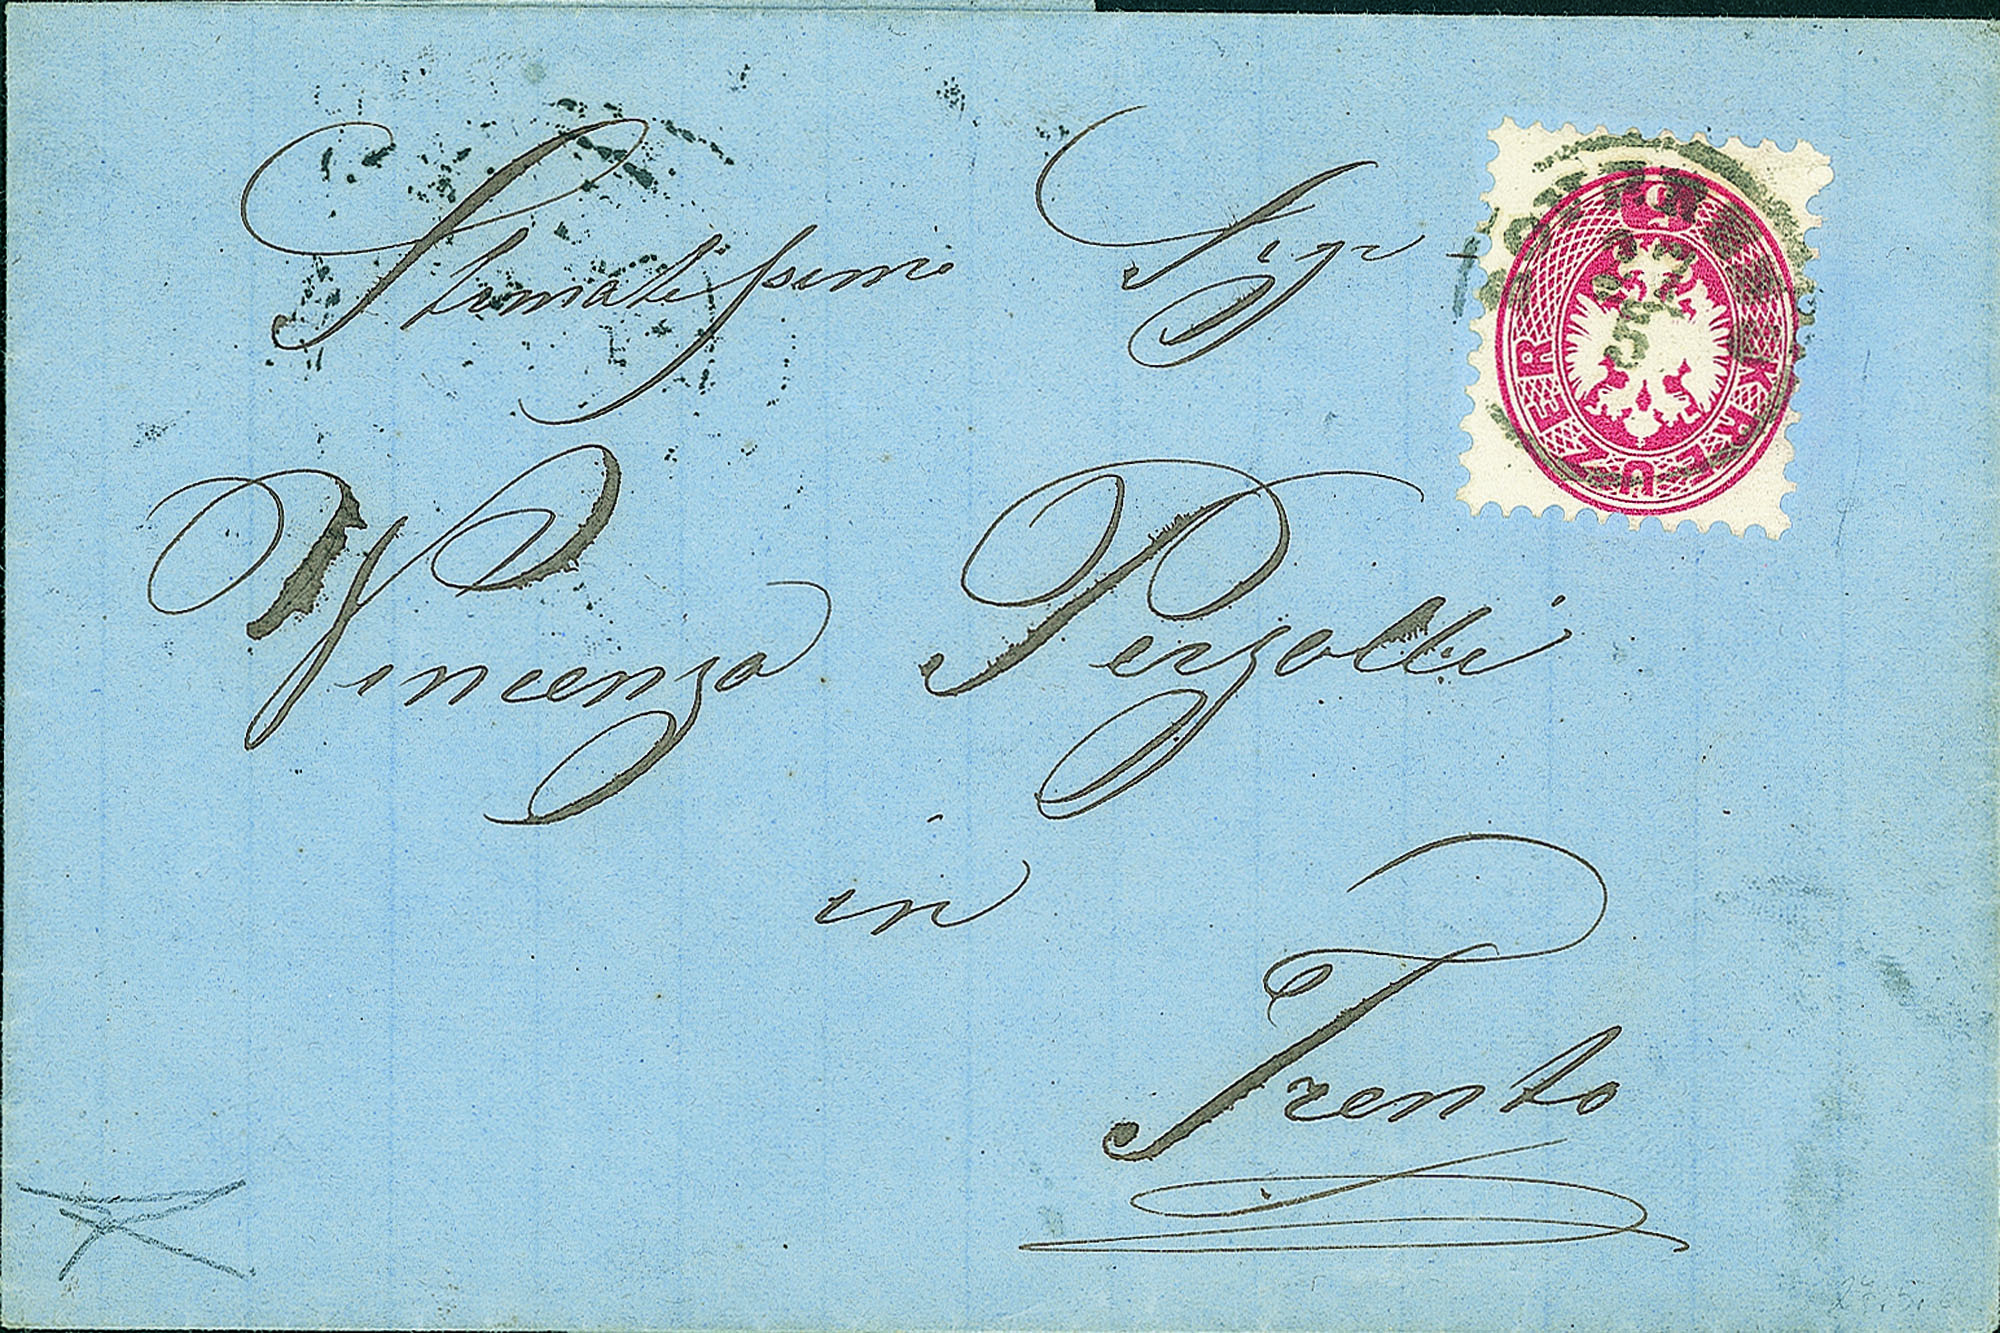 Stimatissimo Sigr
Vincenzo Perzolli
in
Trento
5 KREUZER
27
5